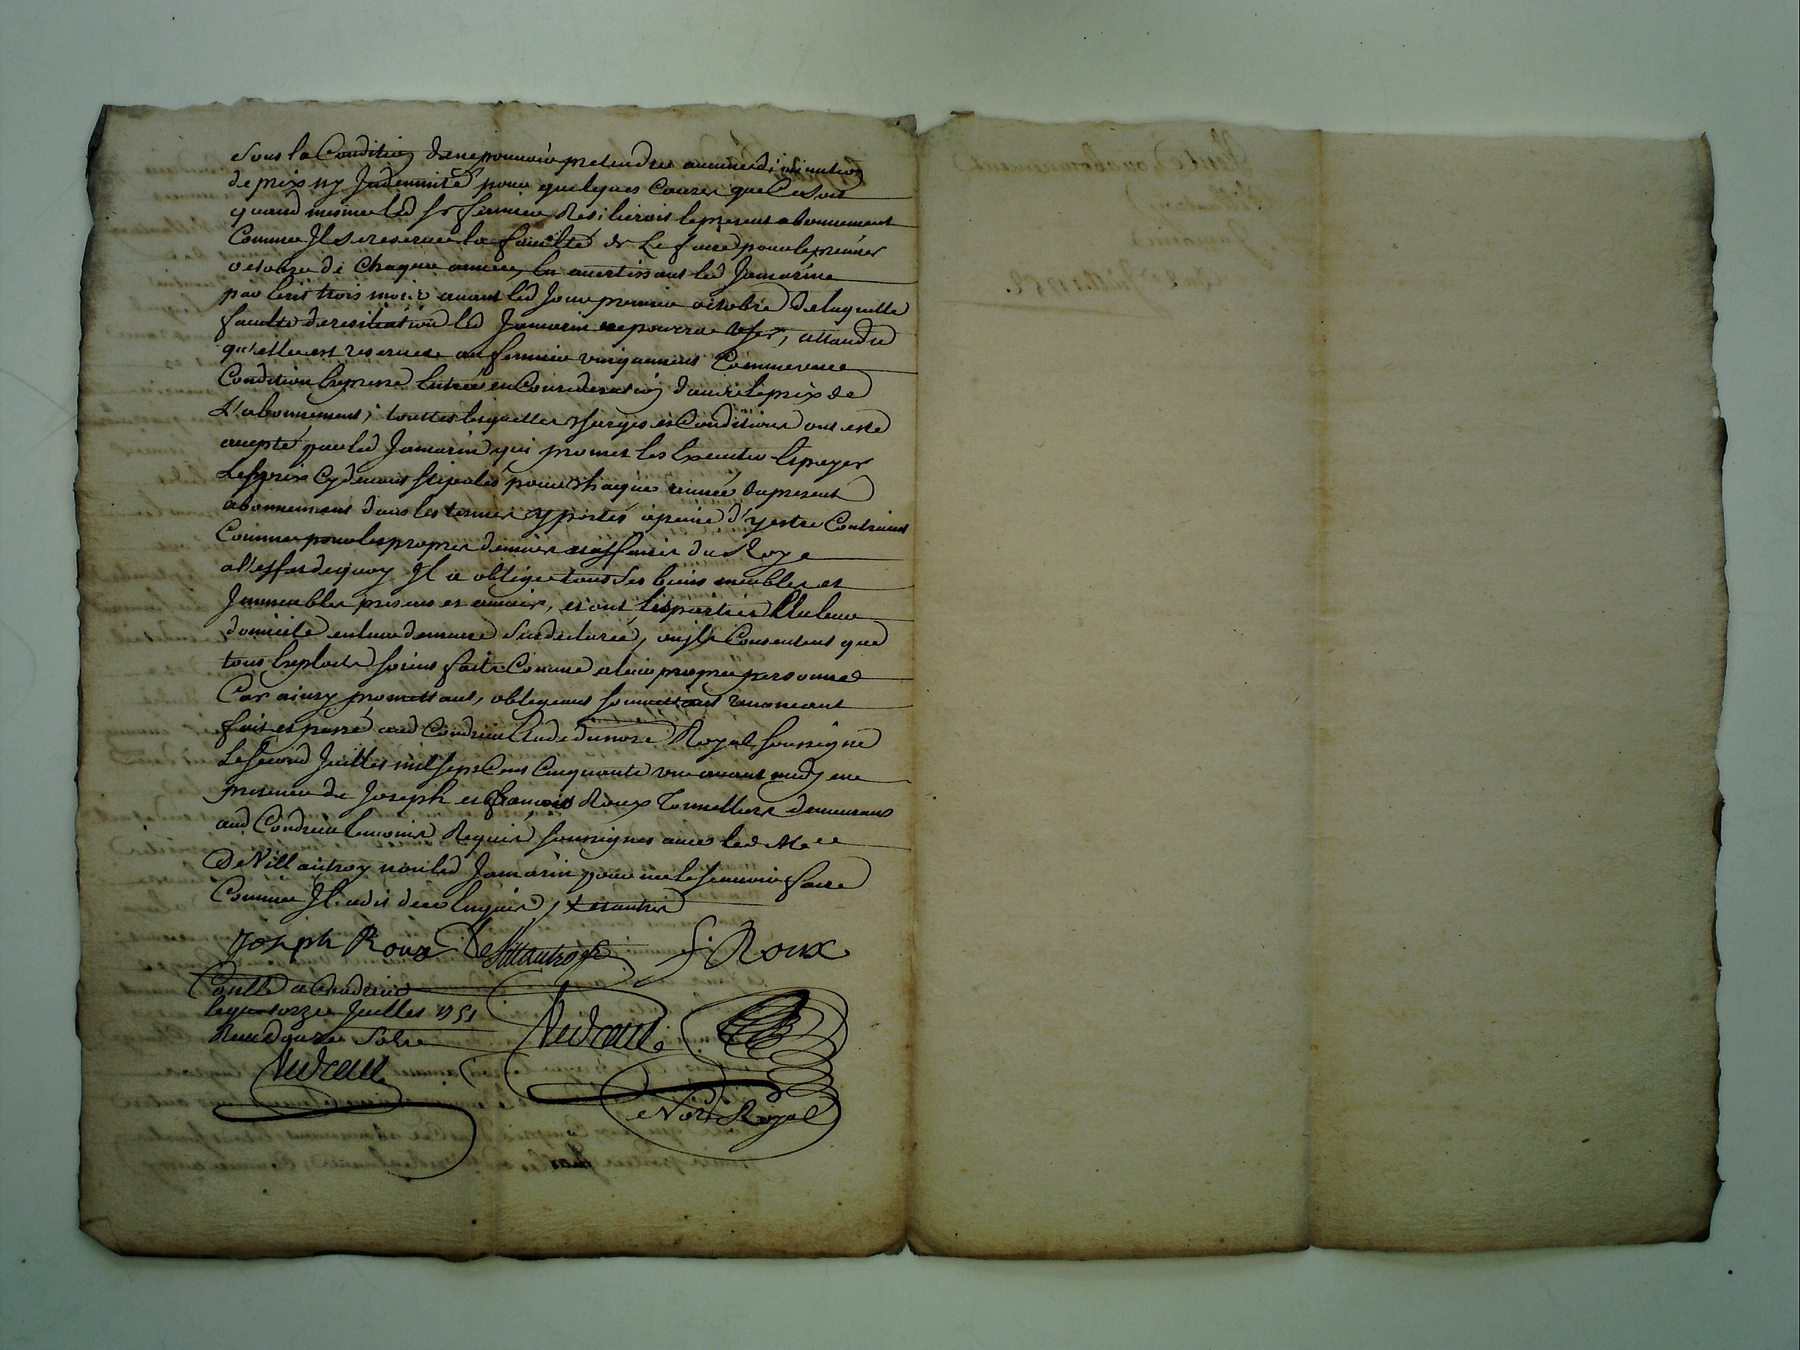 sous la Condition de ne pouvoir pretendre aucune diminution
de prix ny Indemnité pour quelques Causes que Ce soit
quand mesme led Sr fermier Resilieroit le present abonnement
Comme Il se reserve la faculté de Le faire pour le premier
octobre de Chaque année en avertissant led Jamarin
par Ecrit trois mois avant led Jour premier octobre De laquelle
faculté de resiliation led Jamarin ne pourra User, attandu
qu'elle est reservée au fermier uniquement Comme une
Condition Expresse Entrée en Consideration dans le prix de
L'abonnement, touttes lesquelles Charges et Conditions ont esté
acepté par led Jamarin qui promet les Executer Et payer
Le prix Cy dessus stipulés pour Chaque année du present
abonnement dans les termes y portés a peine d'y estre Contraint
Comme pour les propres deniers et affaires du Roy
a l'effet de quoy Il a obligé tous ses biens meubles et
Immeubles presens et avenir, et ont les parties Elu leur
domicile en leur demeure Susdeclarée, ou ils Consentent que
tous Exploits soient faits Comme a leur propre personnes
Car ainsy promettant, obligeant soumettant renonceant
fait et passé aud Condrieu Etude du nore Royal soussigné
Le second Juillet mil sept Cens Cinquante un avant midy en
presence de Joseph et françois Roux Tonnelliers demeurans
aud Condrieu temoins Requis soussignes avec led Me
De Villautroy non led Jamarin pour ne le scavoir faire
Comme Il a dit de ce Enquis,
Joseph Roux De Villautroy f. Roux
Conllé a Condrieu
le quatorze Juillet 1751
Reçu douze Sols
Nore Royal